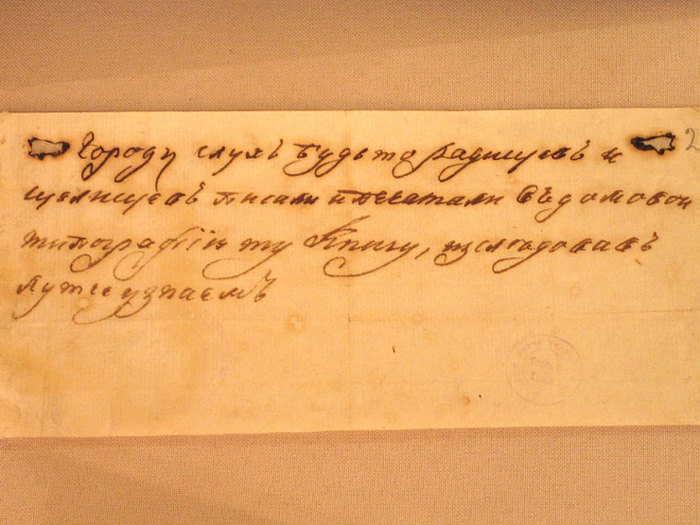 городу слухъ будьто Радищевъ и
щелищевъ писали и печатали въ домовой
типографіи ту Книгу, изследовавъ
лутче узнаемъ
2